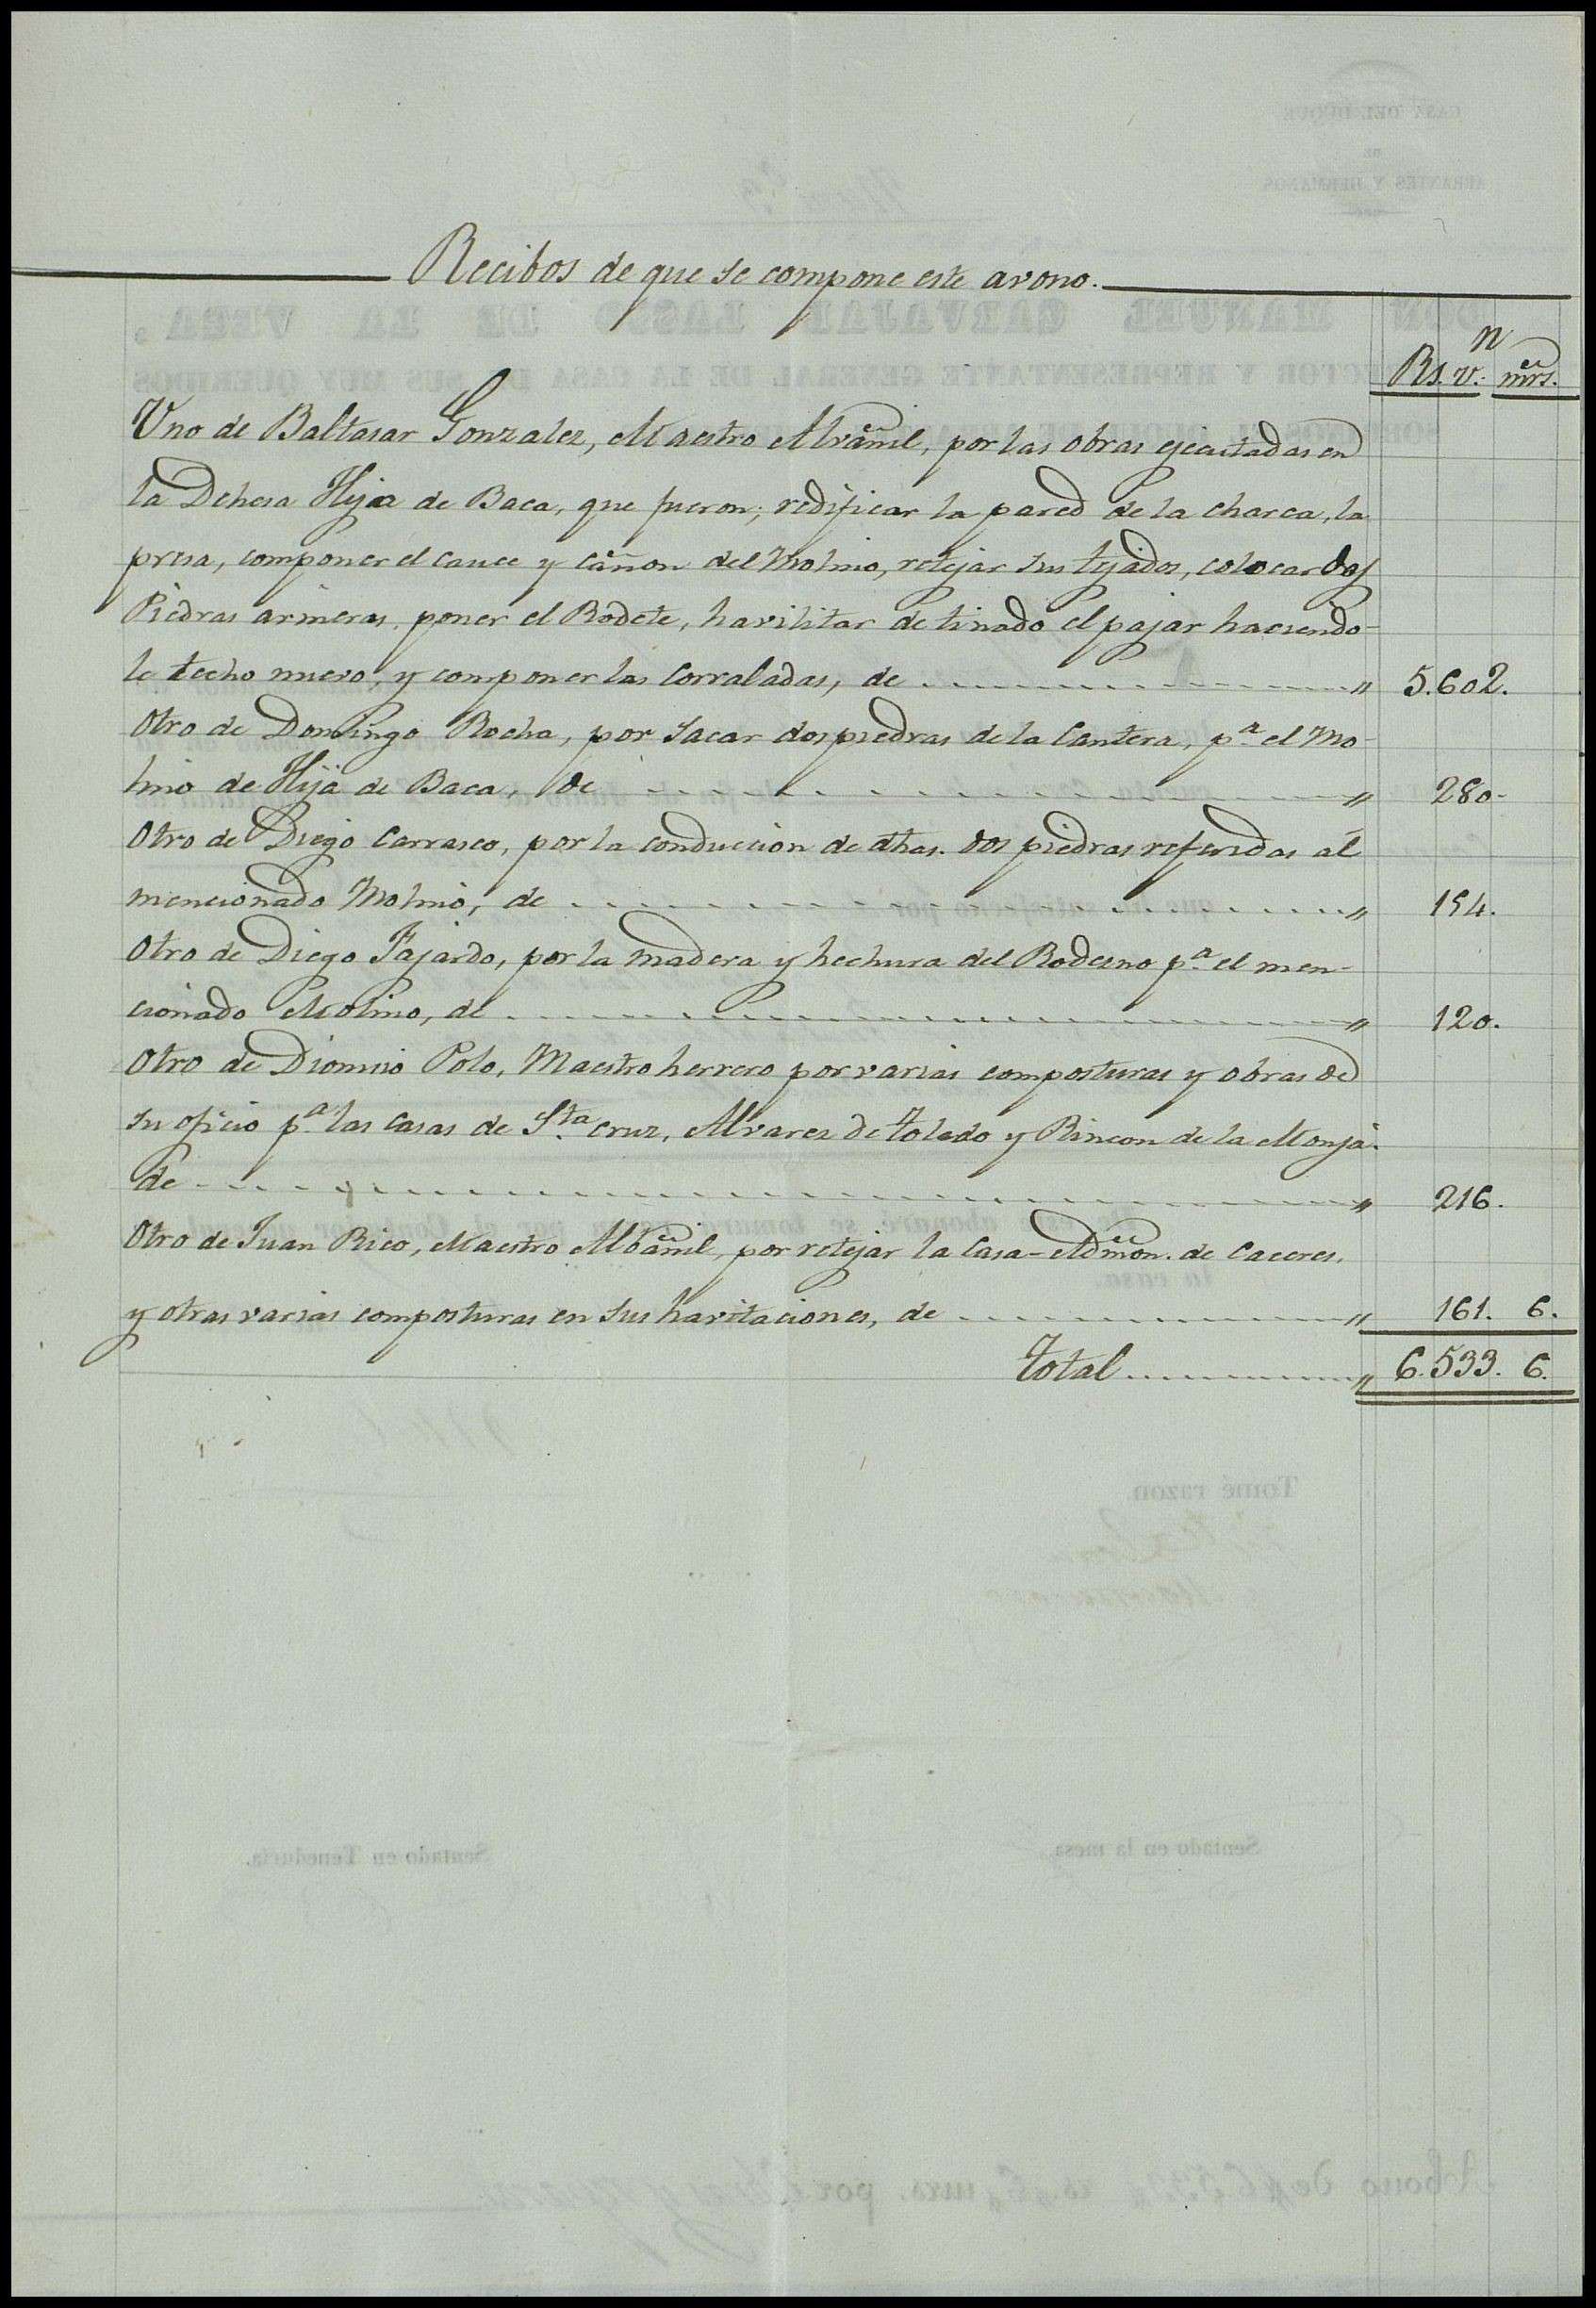 Recibos de que se compone este avono.
Rs. vn. mrs.
Uno de Baltasar Gonzalez, Maestro Alvañil, por las obras ejecutadas en
la Dehesa Hija de Baca, que fueron; redificar la pared de la charca, la
presa, componer el cauce y cañon del Molino, retejar sus tejados, colocar dos
Piedras arineras, poner el Rodete, havilitar de tinado el pajar haciendo-
le techo nuevo, y componer las Corraladas, de 〃 5.602.
Otro de Domingo Rocha, por sacar dos piedras de la Cantera, pª el Mo-
lino de Hija de Baca, de 〃 280.
Otro de Diego Carrasco, por la conduccion de dhas. dos piedras referidas al
mencionado Molino, de 〃 154.
Otro de Diego Fajardo, por la madera y hechura del Rodezno pª el men-
cionado Molino, de 〃 120.
Otro de Dionisio Polo, Maestro herrero por varias composturas y obras de
su oficio pª las Casas de Sta. Cruz, Alvarez de Toledo y Rincon de la Monja.
de 〃 216.
Otro de Juan Rico, Maestro Albañil, por retejar la Casa-Admon. de Caceres,
y otras varias composturas en sus havitaciones, de 〃 161. 6.
Total 〃 6.533. 6.